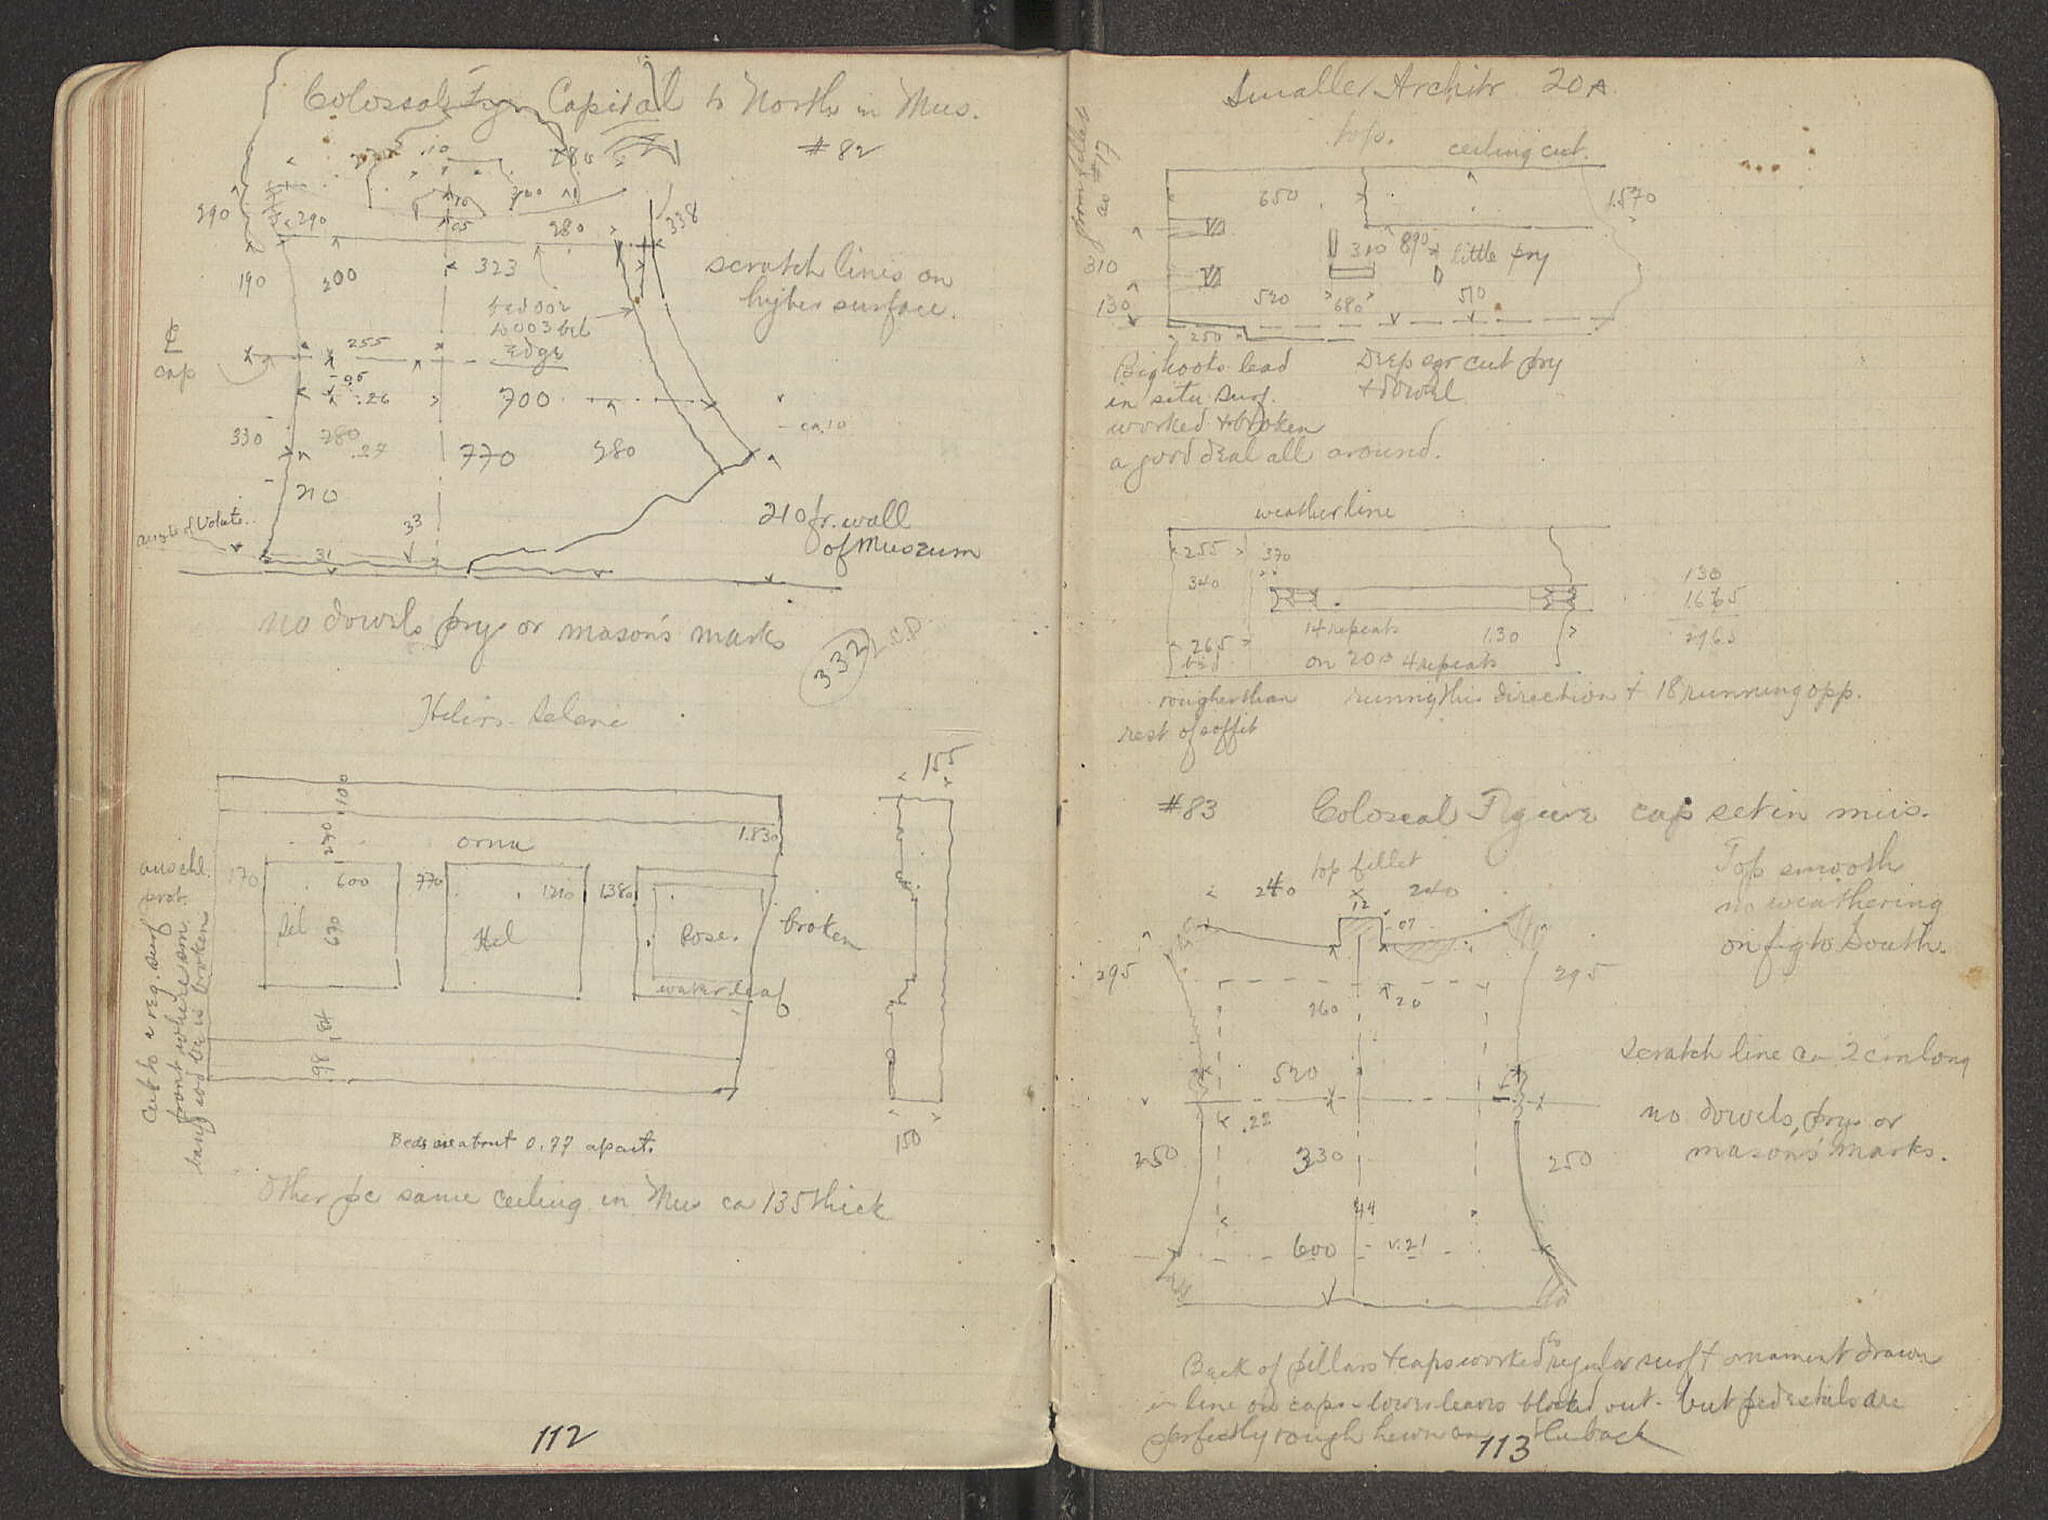 Colossal Fig Capital to North in Mus.
#82
.10
280
290
290
.05
280
338
190
200
323
scratch lines on
higher surface.
bed 002
to 003 bel
edge
cap
255
.05
.26
700
ca 10
330
280
.27
770
280
210
angle of Volute.
33
31
210 fr. wall
of Museum
no dowels pry or mason's marks
332
Helios-Selene
155
100
230
ornu
1.830
170
600
770
1210
1380
Sel
670
Hel
Rose.
broken
waterleaf
184
98
150
Cut to a reg. surf
front where orn.
band wod be is broken
Beds are about 0.77 apart.
Other pc same ceiling in Mus ca 135 thick
112
Smaller Archit 20A
top.
ceiling cut.
650
1.570
310
310
890
little pry
130
520
680
510
250
Big hoots lead
in situ surf.
worked + broken
a good deal all around.
Deep sqr cut pry
+ dowel
weather line
255
370
340
130
1665
14 repeats
1.30
265
bed
on 20B 4 repeats
rougher than
rest of soffit
running this direction + 18 running opp.
#83
Colossal Figure cap set in mus.
top fillet
240
240
12
.07
Top smooth
no weathering
on fig to South.
295
295
260
20
Scratch line ca 2 cm long
520
.22
no dowels, pry or
mason's marks.
250
330
250
44
600
v.21
Back of pillars + caps worked to regular surf + ornament drawn
in line on caps - lower leaves blocked out - but pedestals are
perfectly rough hewn on the back
113